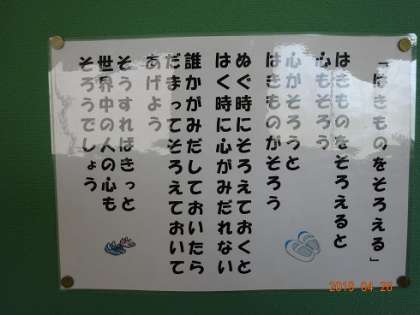 「はきものをそろえる」
はきものをそろえると
心もそろう
心がそろうと
はきものがそろう
ぬぐ時にそろえておくと
はく時に心がみだれない
誰かがみだしておいたら
だまってそろえておいて
あげよう
そうすればきっと
世界中の人の心も
そろうでしょう
2015 04 20